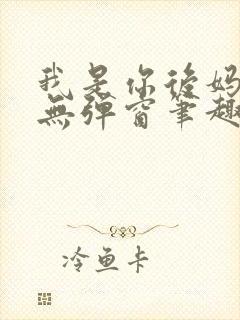 我是你後妈
無弹窗筆趣
冷鱼卡